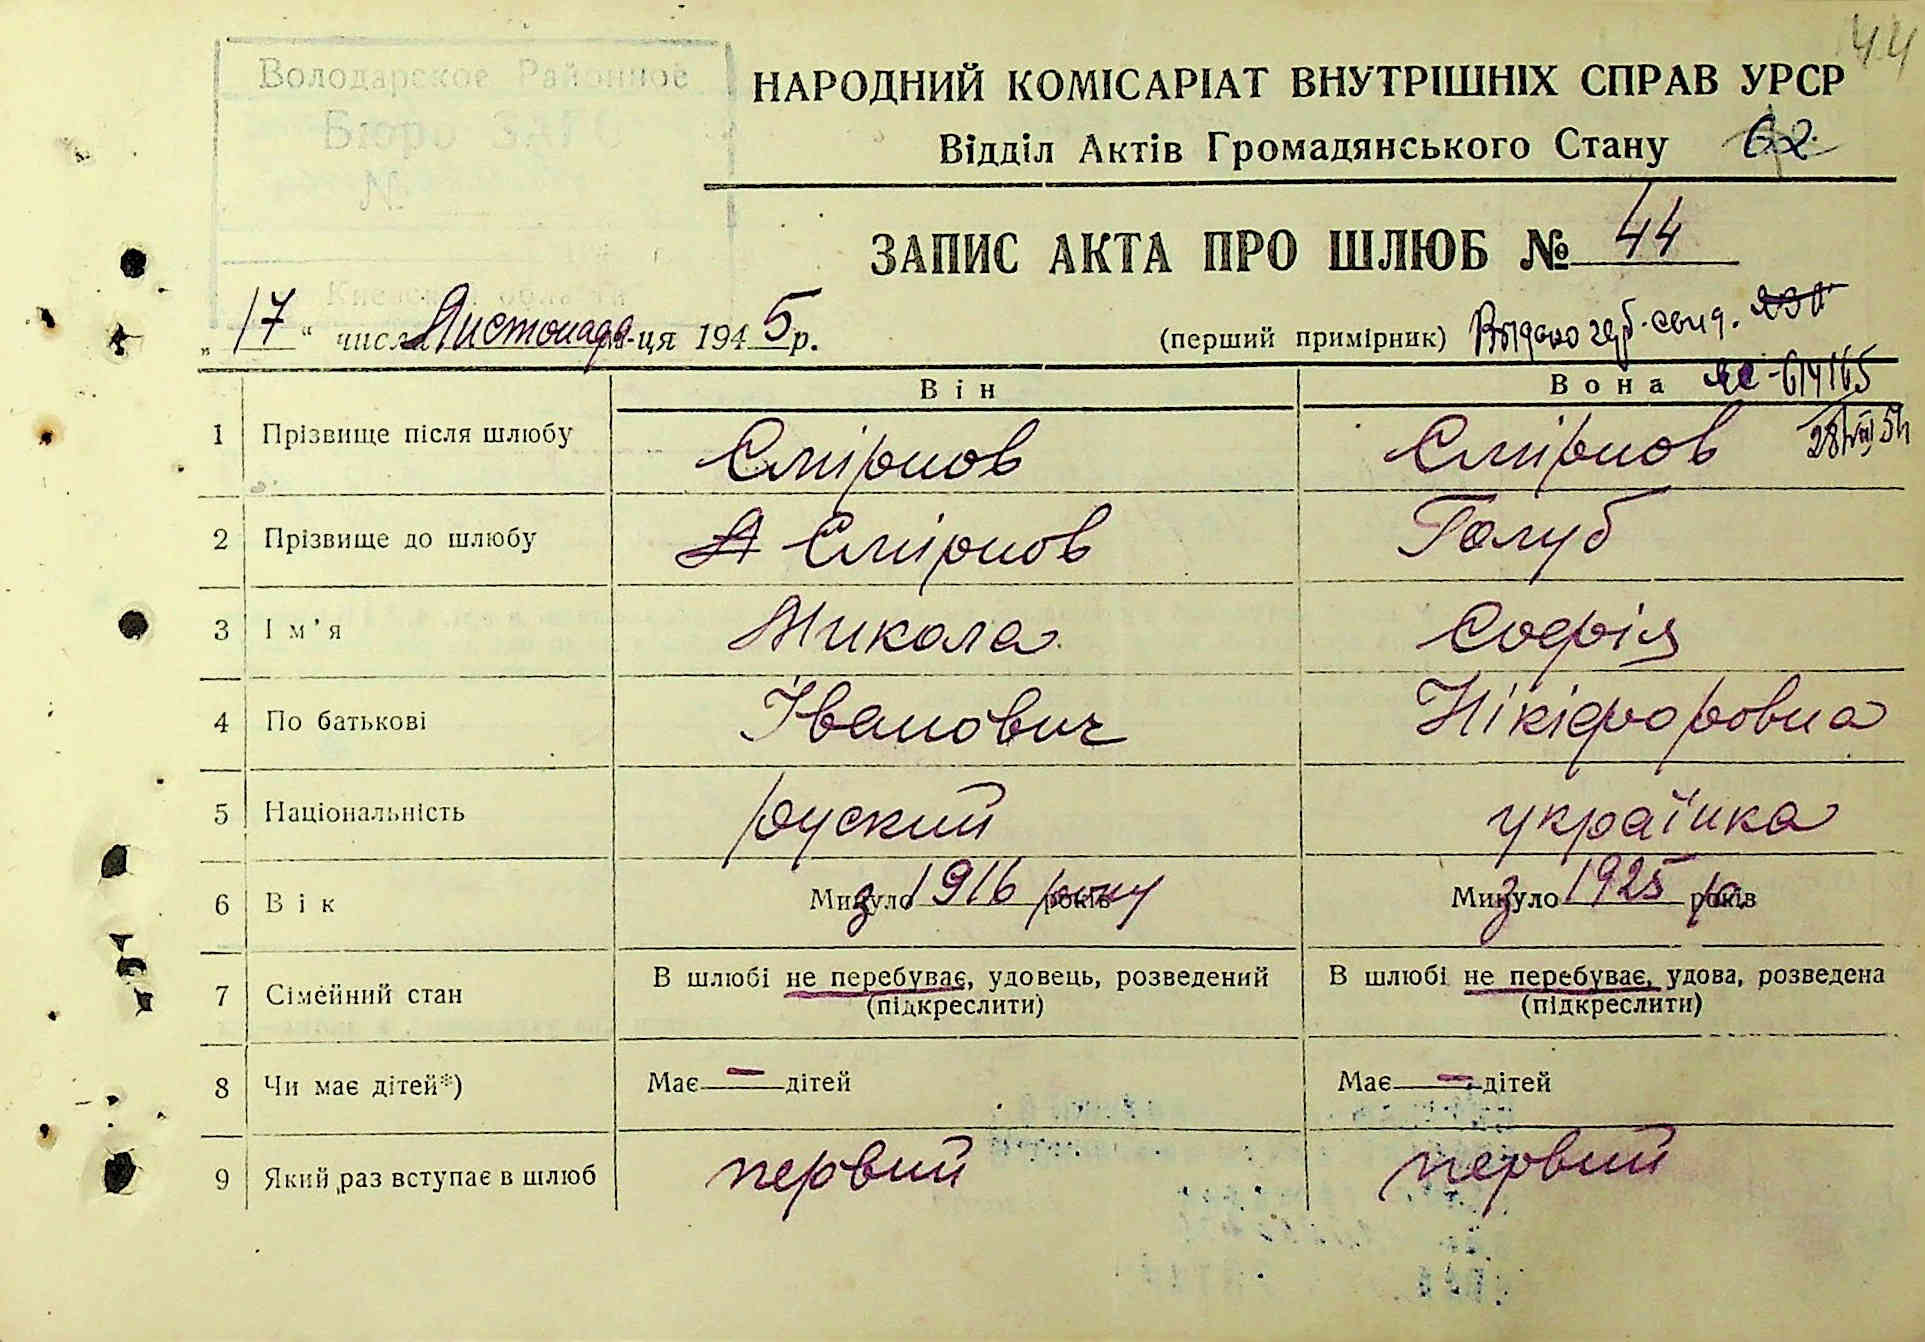 44
Володарское Районное
Бюро ЗАГС
№
Киевской области
НАРОДНИЙ КОМІСАРІАТ ВНУТРІШНІХ СПРАВ УРСР
Відділ Актів Громадянського Стану 62
ЗАПИС АКТА ПРО ШЛЮБ № 44
„17“ числа Листопада м-ця 1945 р. (перший примірник)
Він Вона
1 Прізвище після шлюбу Смірнов Смірнов
2 Прізвище до шлюбу Смірнов Голуб
3 Ім’я Микола Софія
4 По батькові Іванович Нікіфоровна
5 Національність руский українка
6 Вік Минуло з 1916 року років Минуло з 1925 р. років
7 Сімейний стан В шлюбі не перебуває, удовець, розведений (підкреслити) В шлюбі не перебуває, удова, розведена (підкреслити)
8 Чи має дітей*) Має — дітей Має — дітей
9 Який раз вступає в шлюб первий первий